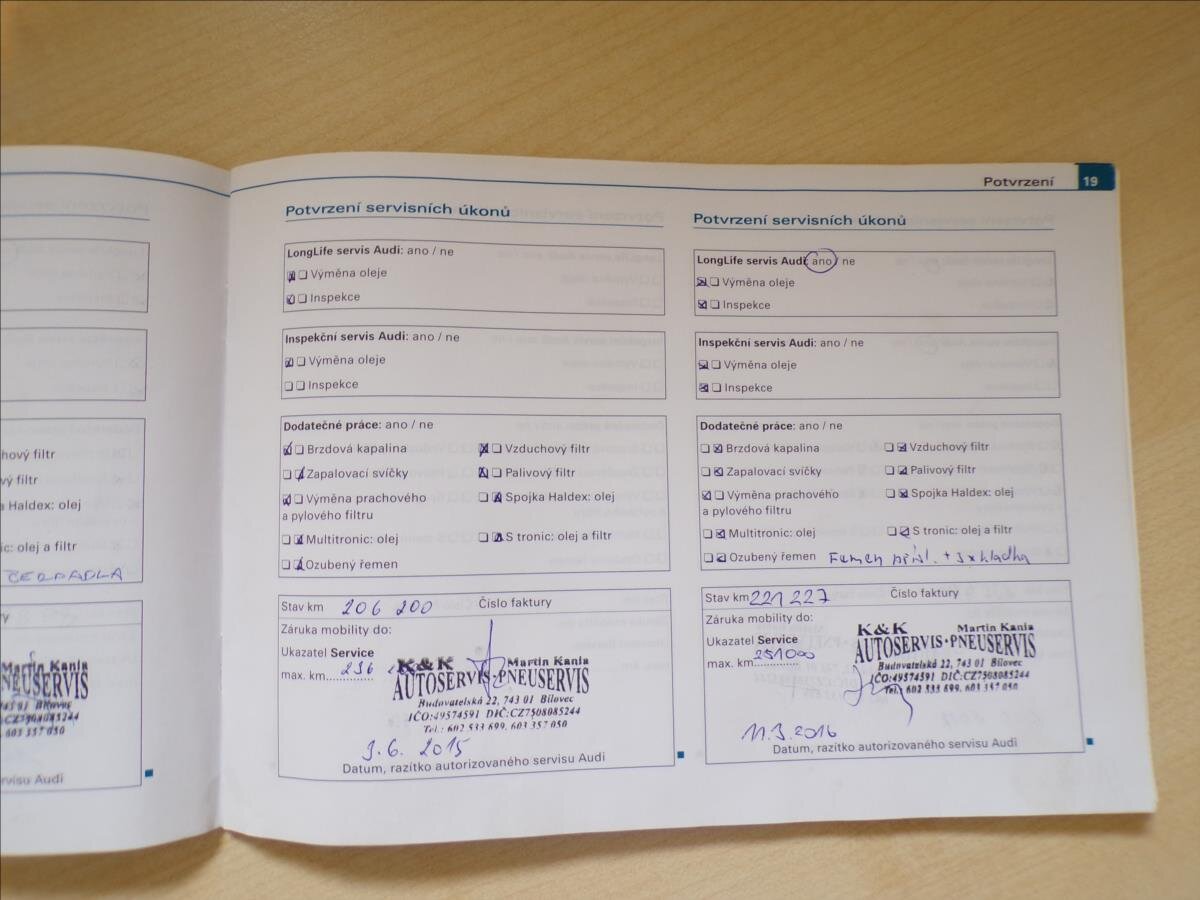 hový filtr
vý filtr
a Haldex: olej
ic: olej a filtr
ČERPADLA
y
Martin Kania
NEUSERVIS
743 01 Bílovec
CZ7508085244
603 357 050
rvisu Audi
Potvrzení 19
Potvrzení servisních úkonů
LongLife servis Audi: ano / ne
Výměna oleje
Inspekce
Inspekční servis Audi: ano / ne
Výměna oleje
Inspekce
Dodatečné práce: ano / ne
Brzdová kapalina Vzduchový filtr
Zapalovací svíčky Palivový filtr
Výměna prachového Spojka Haldex: olej
a pylového filtru
Multitronic: olej S tronic: olej a filtr
Ozubený řemen
Stav km 206 200 Číslo faktury
Záruka mobility do:
Ukazatel Service
max. km 236
K&K Martin Kania
AUTOSERVIS-PNEUSERVIS
Budovatelská 22, 743 01 Bílovec
IČO:49574591 DIČ:CZ7508085244
Tel.: 602 533 699, 603 357 050
3.6. 2015
Datum, razítko autorizovaného servisu Audi
Potvrzení servisních úkonů
LongLife servis Audi: ano / ne
Výměna oleje
Inspekce
Inspekční servis Audi: ano / ne
Výměna oleje
Inspekce
Dodatečné práce: ano / ne
Brzdová kapalina Vzduchový filtr
Zapalovací svíčky Palivový filtr
Výměna prachového Spojka Haldex: olej
a pylového filtru
Multitronic: olej S tronic: olej a filtr
Ozubený řemen Řemen přísl. + 3x kladka
Stav km 221 227 Číslo faktury
Záruka mobility do:
Ukazatel Service
max. km 251000
K&K Martin Kania
AUTOSERVIS-PNEUSERVIS
Budovatelská 22, 743 01 Bílovec
IČO:49574591 DIČ:CZ7508085244
Tel.: 602 533 699, 603 357 050
11.3.2016
Datum, razítko autorizovaného servisu Audi